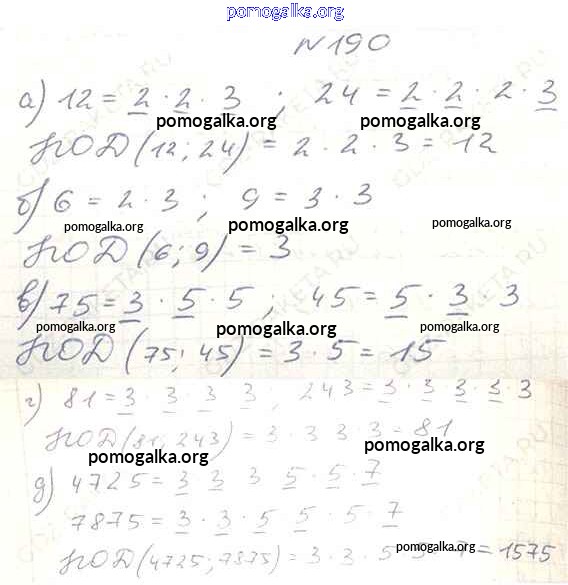 pomogalka.org
№190
а) 12 = 2 · 2 · 3 ; 24 = 2 · 2 · 2 · 3
pomogalka.org pomogalka.org
НОД (12; 24) = 2 · 2 · 3 = 12
б) 6 = 2 · 3 ; 9 = 3 · 3
pomogalka.org pomogalka.org pomogalka.org
НОД (6; 9) = 3
в) 75 = 3 · 5 · 5 ; 45 = 5 · 3 · 3
pomogalka.org pomogalka.org pomogalka.org
НОД (75; 45) = 3 · 5 = 15
г) 81 = 3 · 3 · 3 · 3 ; 243 = 3 · 3 3 · 3 · 3
НОД (81; 243) = 3 · 3 3 · 3 = 81
pomogalka.org pomogalka.org
д) 4725 = 3 · 3 3 5 · 5 · 7
7875 = 3 · 3 · 5 5 · 5 · 7
НОД (4725; 7875) = 3 · 3 · 5 7 = 1575
pomogalka.org